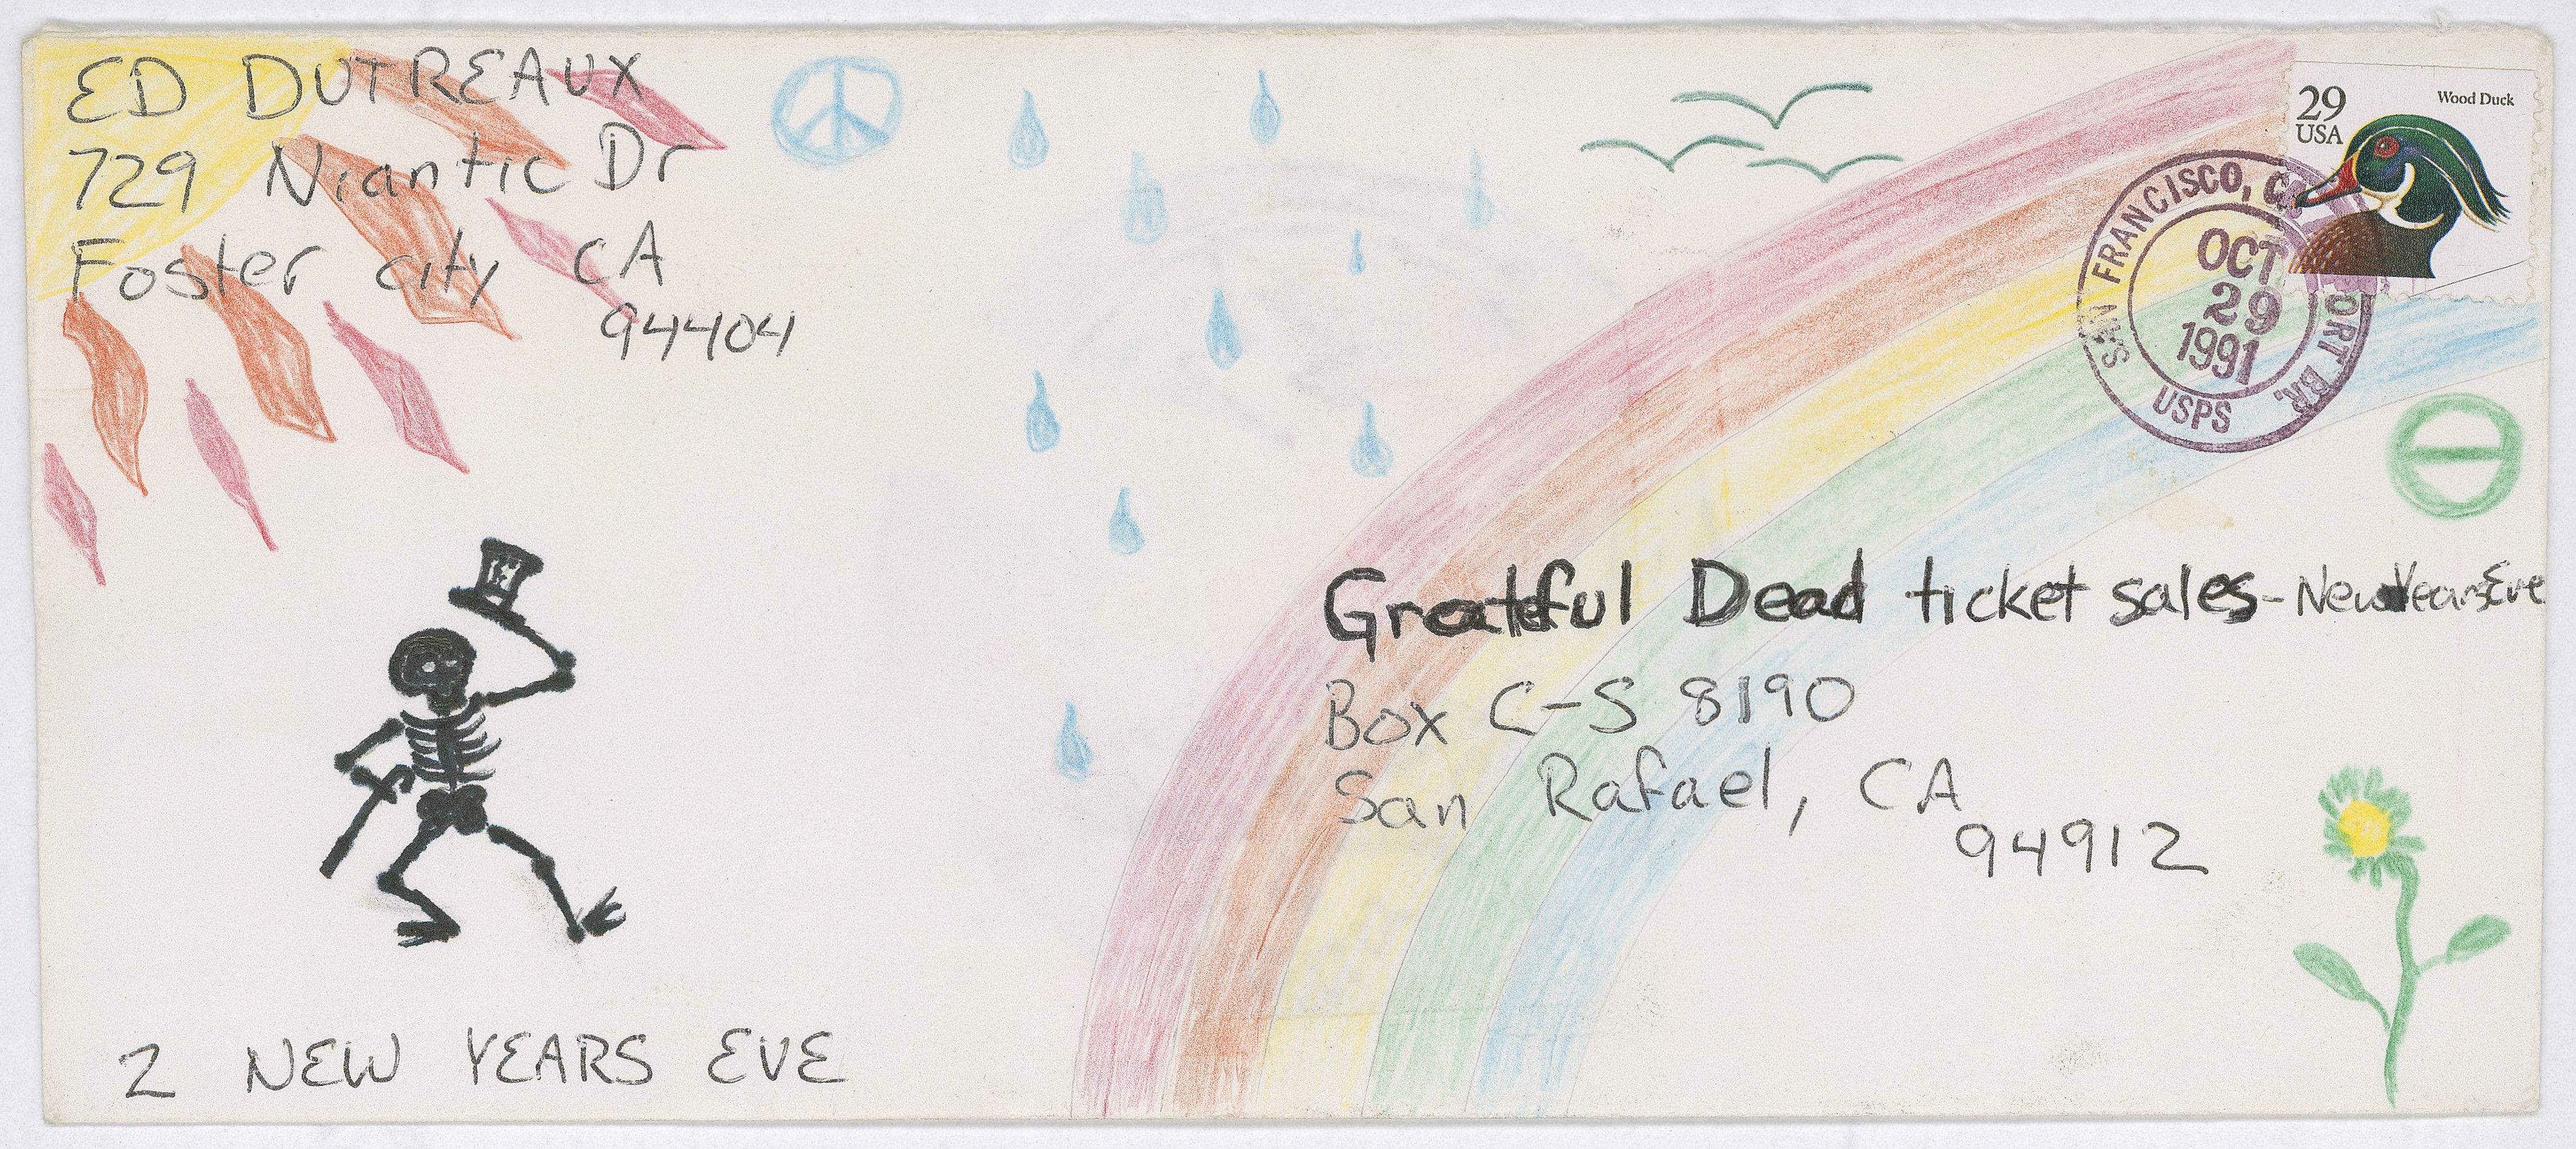 ED DUTREAUX
729 Niantic Dr
Foster city CA
94404
29
USA
Wood Duck
SAN FRANCISCO, CA
OCT
29
1991
USPS
Grateful Dead ticket sales - New Years Eve
Box C-S 8190
San Rafael, CA
94912
2 NEW YEARS EVE